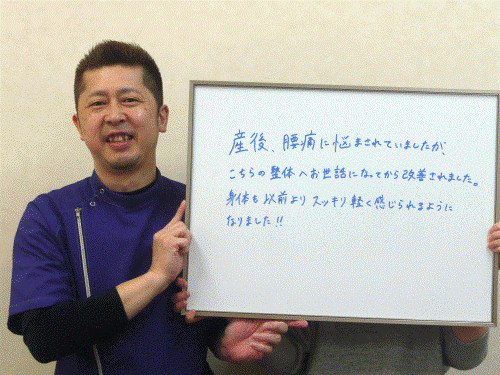 産後、腰痛に悩まされていましたが、
こちらの整体へお世話になってから改善されました。
身体も以前よりスッキリ軽く感じられるように
なりました!!